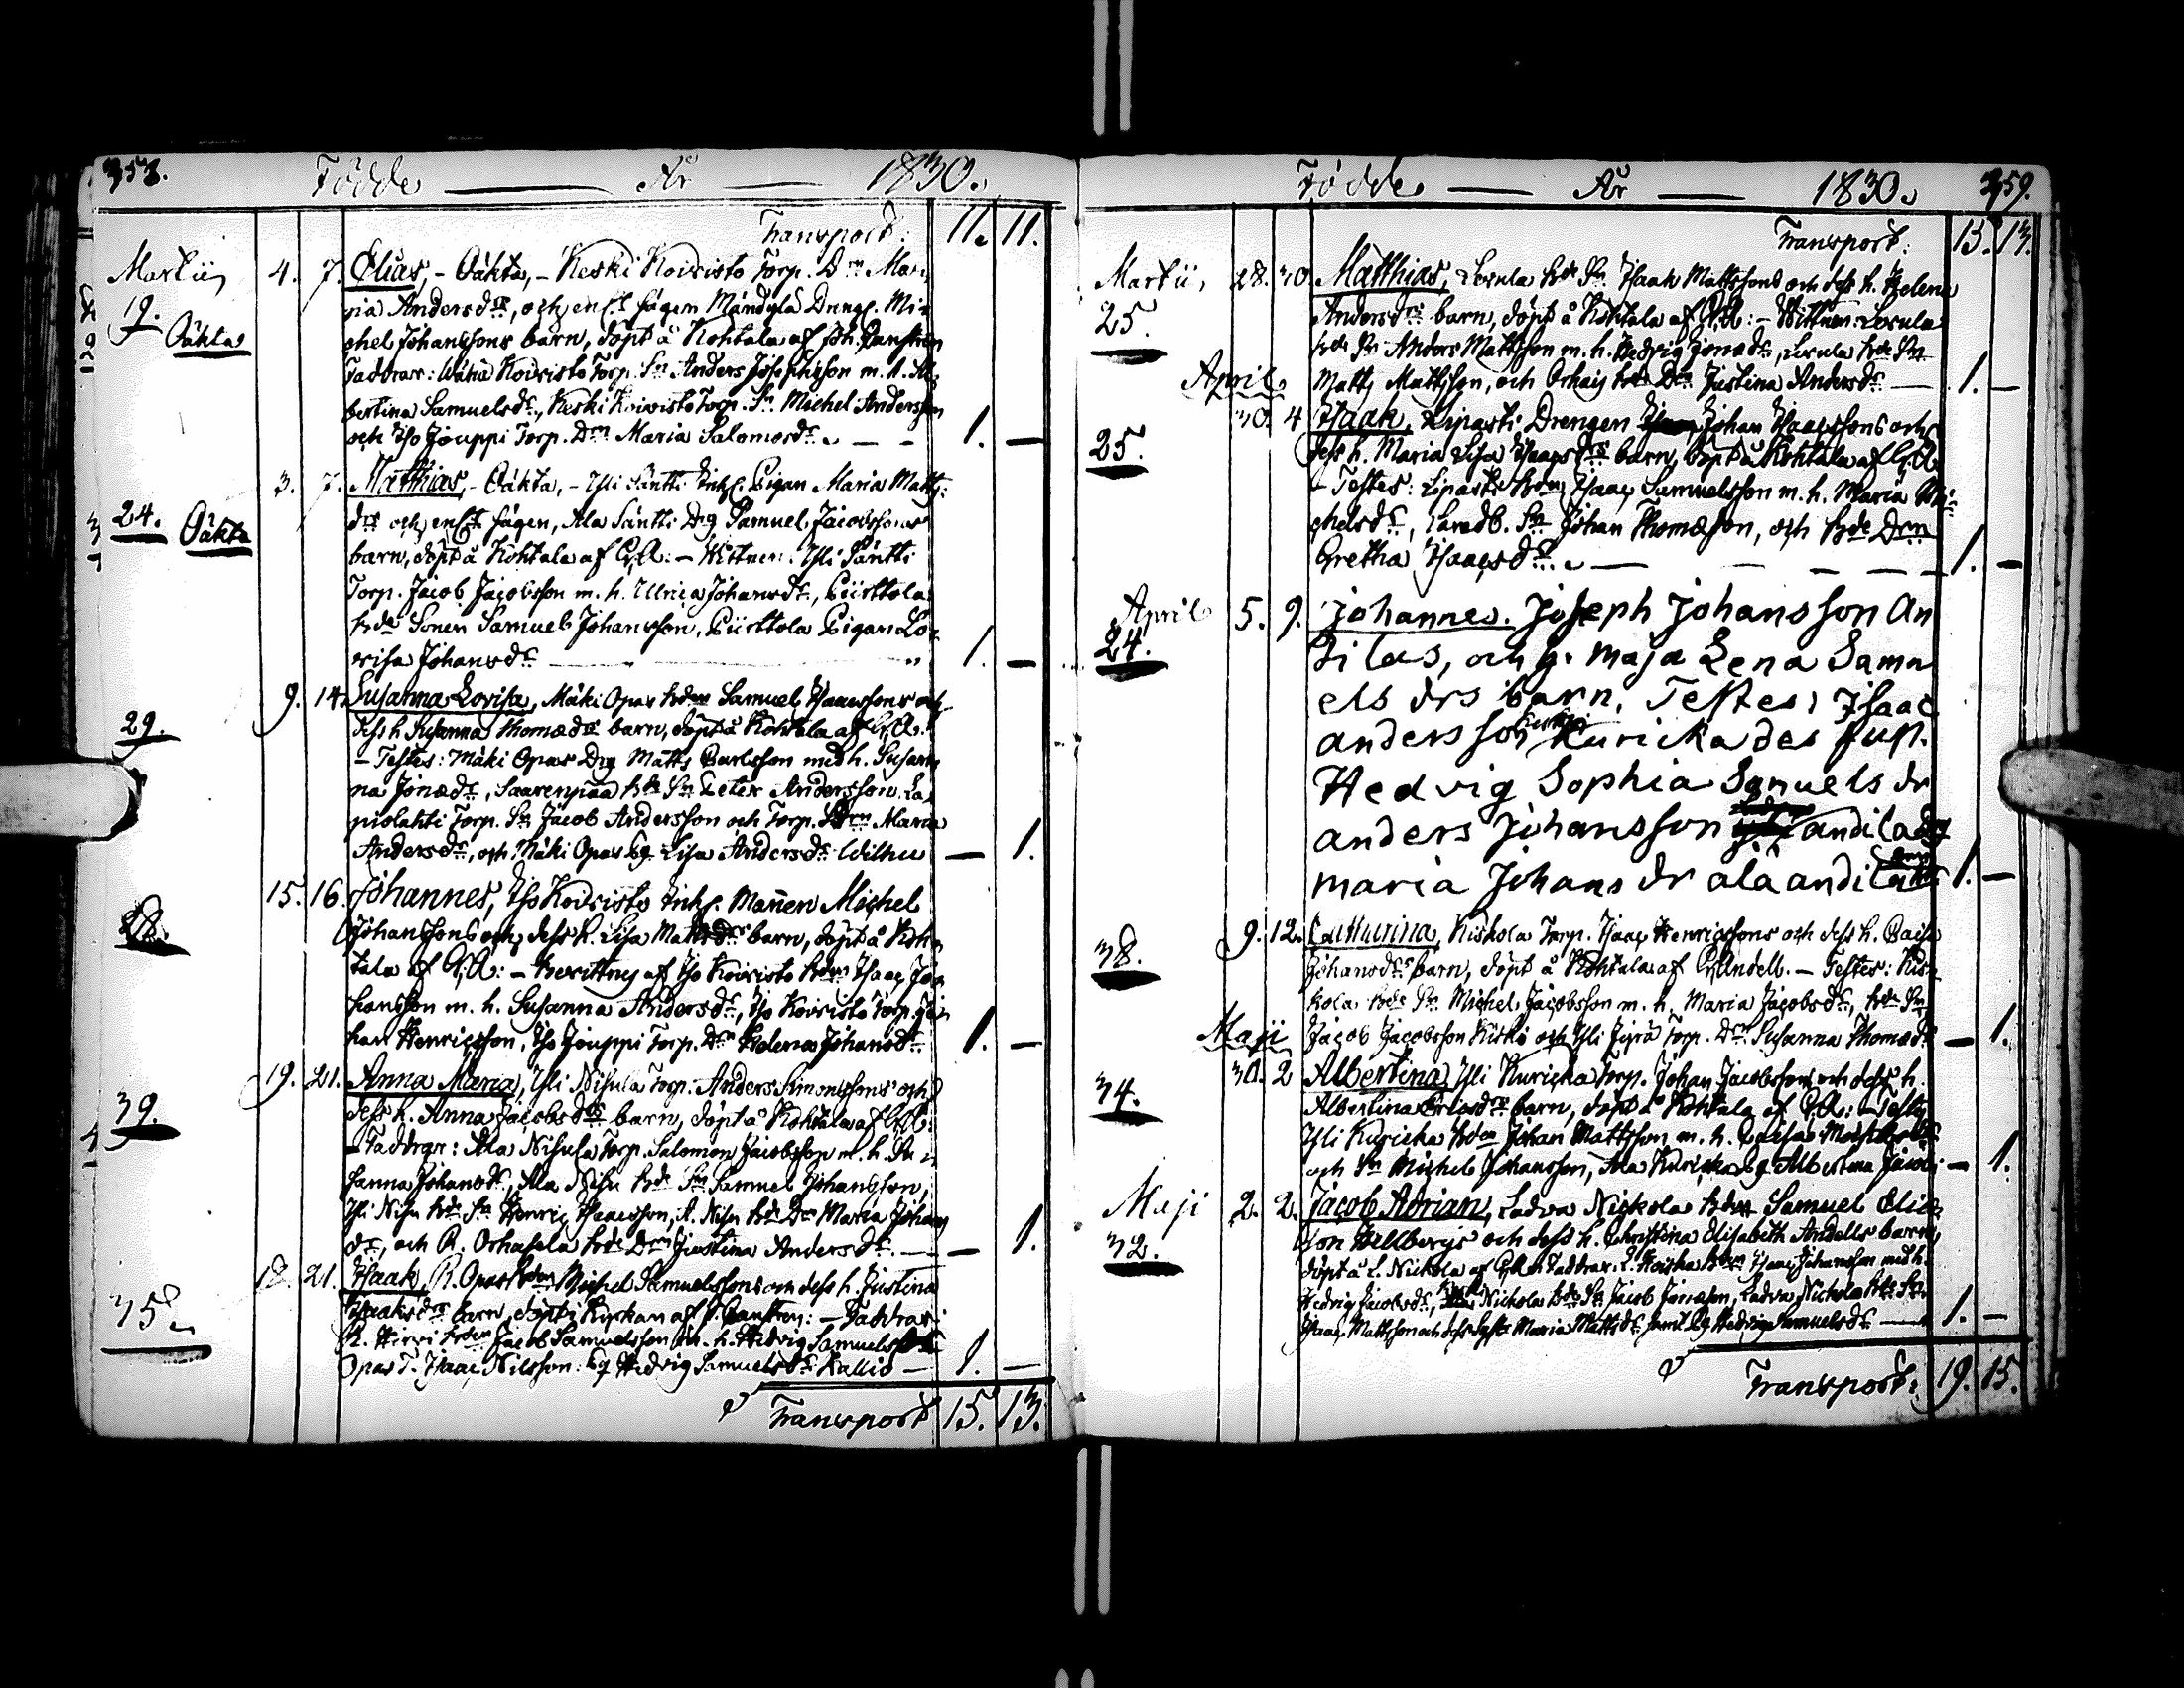 358. Födde — År — 1830.
Transport: 11. 11.
Martii 4. 7. Elias, – Oäkta, – Keski Koivisto Torp. Drn Mari
19. ria Andersdr, och enl. sägen Mändylä Dreng. Mi-
Oäkta chel Johanssons barn, döpt å Kohtala af Joh.
Faddrar: Wähä Koivisto Torp. Sn Anders Josephsson m. h. Al-
bertina Samuelsdr, Keski Koivisto Torp. Sn Michel Andersson
och Iso Jouppi Torp. Drn Maria Salomosdr. — 1. —
3. 7. Matthias, – Oäkta, – Yli Säntti Inhs. Pigan Maria Matts
24. Oäkta drs och enl. sägen, Ala Säntti Drg Samuel Jacobssons
barn, döpt å Kohtala af CA: – Wittnen: Yli Säntti
Torp. Jacob Jacobsson m. h. Ulrica Johansdr, Piirttola
bde Sonen Samuel Johansson, Piirttola Pigan Lo-
visa Johansdr — 1. —
9. 14. Susanna Lovisa, Mäki Opas bdn Samuel Isaacssons och
29. dess h Susanna Thomædrs barn, döpt å Kohtala af CA:
– Testes: Mäki Opas Drg Matts Carlsson med h. Susan
na Jonædr, Saarenpää bde Sn Peter Andersson. La
piolahti Torp. Sn Jacob Andersson och Torp. Drn Maria
Andersdr, och Mäki Opas Pg Lisa Andersdr — 1.
15. 16. Johannes, Iso Koivisto Inhs. Mannen Michel
28. Johanssons och dess h. Lisa Mattsdrs barn, döpt å Koh-
tala af CA: – bevittnes af Iso Koivisto bdn Isaac Jo-
hansson m. h. Susanna Andersdr, Iso Koivisto Torp. Jo-
han Henricsson, Iso Jouppi Torp. Drn Helena Johansdr 1. —
19. 21. Anna Maria, Yli Nisula Torp. Anders Simonssons och
39. dess h. Anna Jacobsdrs barn, döpt å Kohtala af CA:
– Faddrar: Ala Nisula Torp. Salomon Jacobsson m. h. Su-
sanna Johansdr, Ala Nisu bde Sn Samuel Johansson,
Yli Nisu bde Sn Henric Isaacsson, A. Nisu bde Drn Maria Johans
dr, och R. Orhasela bde Drn Justina Andersdr. — 1.
18. 21. Isaak, R. Opas bdn Michel Samuelssons och dess h. Justina
35. Isaaksdrs barn, döpt i Kyrkan af — Faddrar
R. Hirvi bdn Jacob Samuelsson m. h. Hedvig Samuelsdr
Opas T. Isaac Nilsson: Pg Hedvig Samuelsdr Kallio — 1. —
Transport 15. 13.
Födde — År — 1830. 359.
Transport: 15. 13.
Martii, 28. 30. Matthias, Lerula bde Sn Isaak Mattssons och dess h. Helena
25. Andersdrs barn, döpt å Kohtala af CA: – Wittnen: Lerula
bde Sn Anders Mattsson m. h. Hedvig Jonædr, Lerula bde Sn
April Matts Mattsson, och bde Drn Justina Andersdr — 1. —
30. 4 Isaak, Lipasti Drengen Johan Isaacssons och
25. dess h. Maria Lisa Isaacsdrs barn, döpt å Kohtala af CA
– Testes: Lipasti bdn Isaac Samuelsson m. h. Maria Mi-
chelsdr, Sn Johan Thomæson, och bde Drn
Gretha Isaacsdr. — 1. —
April 5. 9. Johannes. Joseph Johansson An
24. dilas, och h. Maja Lena Samu
els drs barn, Testes: Isaac
andersson Kuricka des hust.
Hedvig Sophia Samuels dr
anders Johansson andila
maria Johans dr ala andila 1. —
9. 12. Catharina, Kiskola Torp. Isaac Henricssons och dess h. Caisa
38. Johansdrs barn, döpt å Kohtala af CAndell. – Testes: Kis-
kola bde Sn Michel Jacobsson m. h. Maria Jacobsdr, bde Sn
Maji Jacob Jacobsson Kiskó och Yli Jyrä Torp. Drn Susanna Thomædr — 1.
30. 2 Albertina, Yli Kuricka Torp. Johan Jacobssons och dess h.
34. Albertina Ericsdrs barn, döpt å Kohtala af CA: – Testes
Yli Kuricka bdn Johan Mattsson m. h.
och Sn Michel Johansson, Ala Kuricka Pg Albertina Jacobs — 1.
Maji 2. 2. Jacob Adrian, Ladva Nickola bdn Samuel Elis-
32. son Hellbergs och dess h. Christina Elisabeth Andells barn,
döpt å L. Nickola af CA. Faddrar. L. bdn Isaac Johansson med h.
Hedvig Jacobsdr, Nickola bde Sn Jacob Jonæson, Ladva Nickola bde Sn
Isaac Mattsson och dess Syster Maria Mattsdr samt Pg Hedvig Samuelsdr — 1. —
Transport: 19. 15.